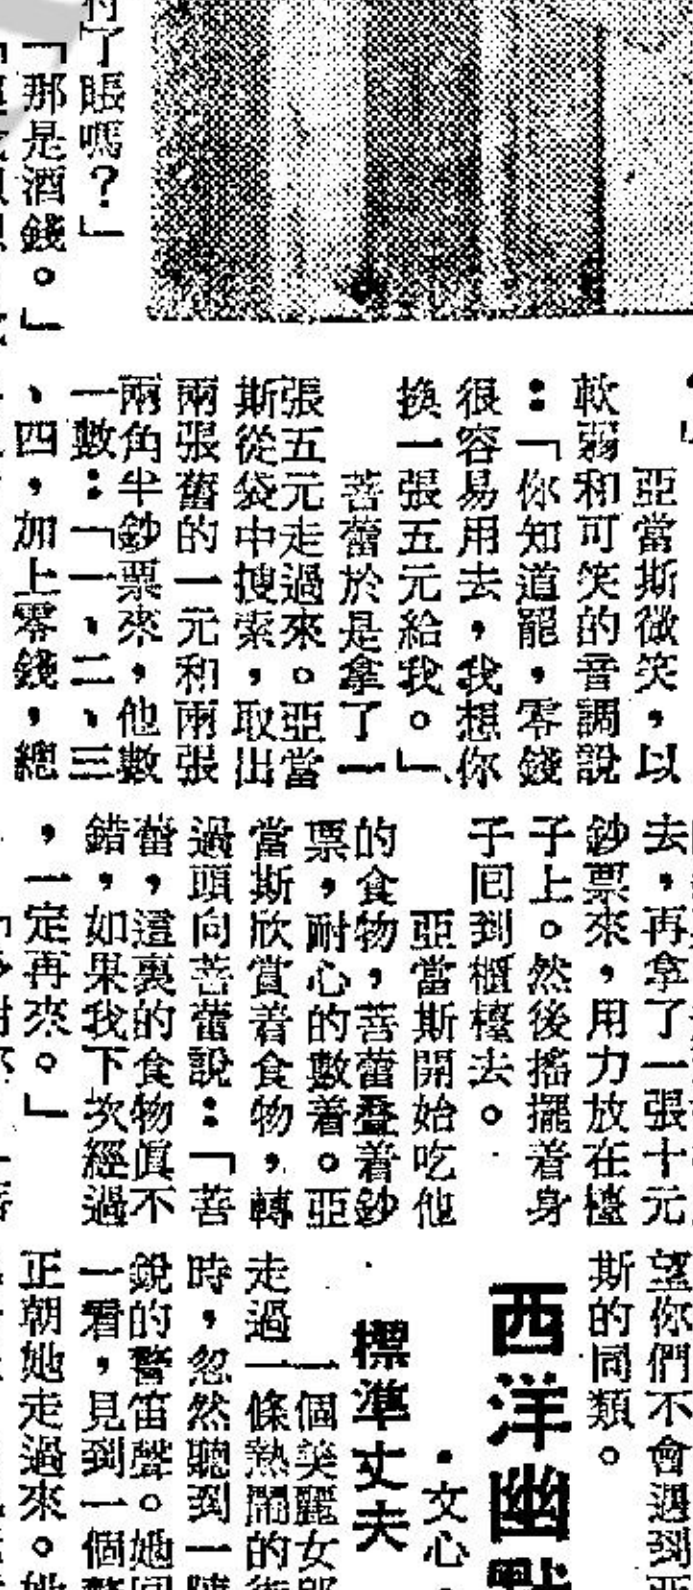 付了賬嗎？」
「那是酒錢。」
亞當斯微笑，以
軟弱和可笑的音調說
：「你知道罷，零錢
很容易用去，我想你
換一張五元給我。」
菩蕾於是拿了一
張五元走過來。亞當
斯從袋中搜索，取出
兩張舊的一元和兩張
兩角半鈔票來，他數
一數：「一、二、三
、四，加上零錢，總
去，再拿了一張十元
鈔票來，用力放在檯
子上。然後搖擺着身
子回到櫃檯去。
亞當斯開始吃他
的食物，菩蕾疊着鈔
票，耐心的數着。亞
當斯欣賞着食物，轉
過頭向菩蕾說：「菩
蕾，這裏的食物眞不
錯，如果我下次經過
，一定再來。」
望你們不會遇到亞
斯的同類。
西洋幽
・文心
標準丈夫
一個美麗女郎
走過一條熱鬧的街
時，忽然聽到一陣
銳的警笛聲。她回
一看，見到一個警
正朝她走過來。她